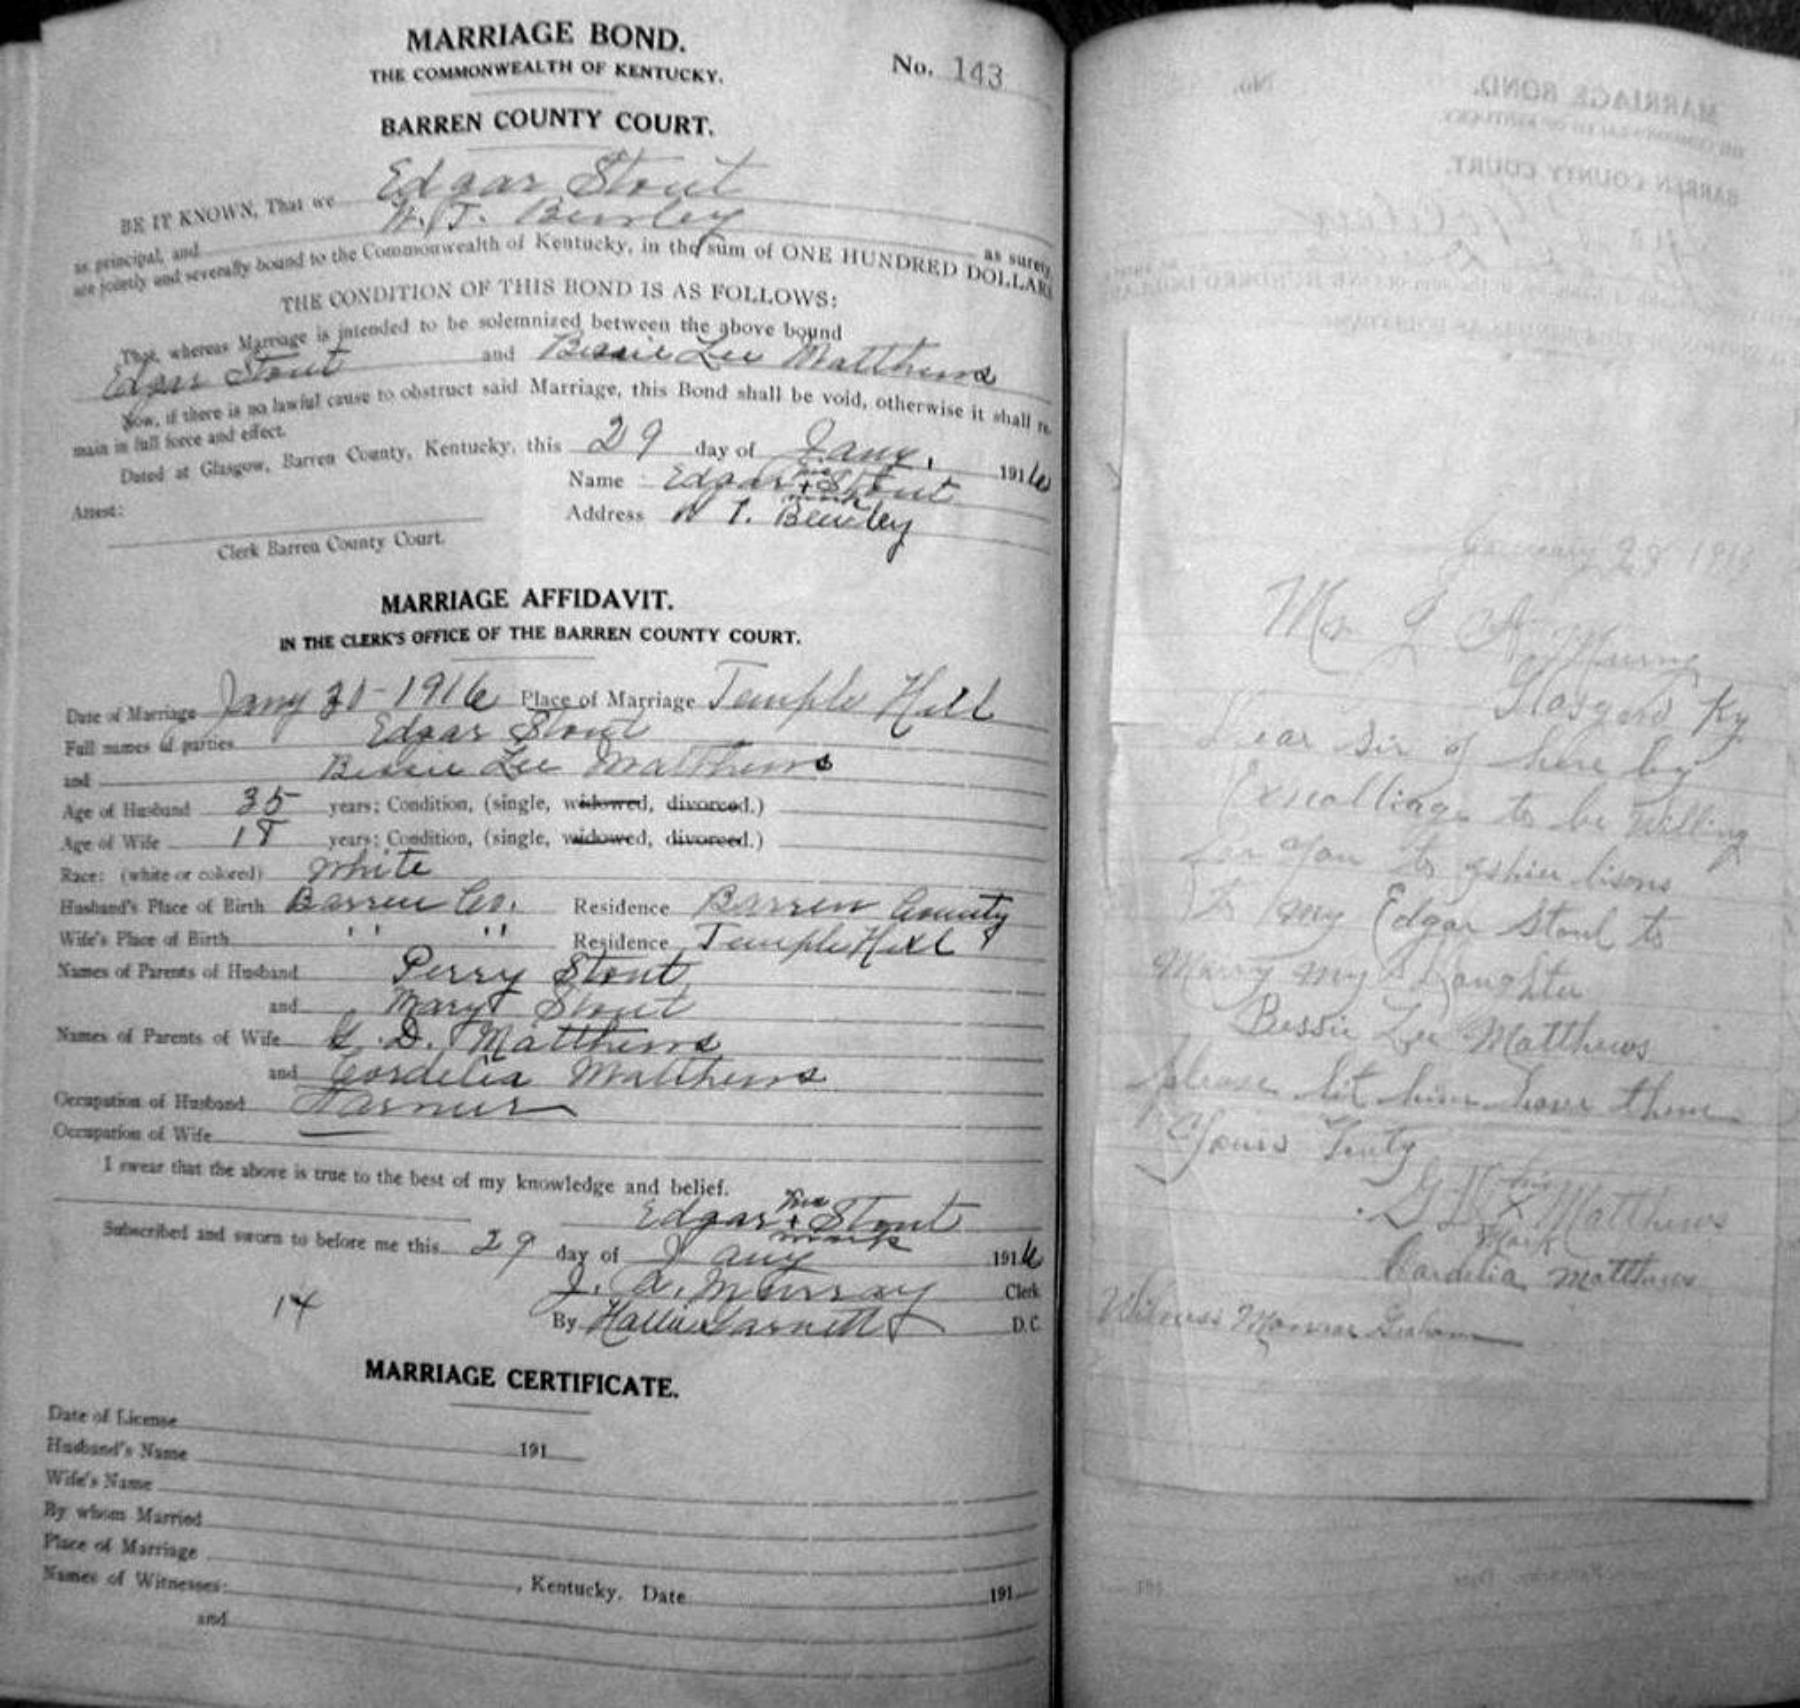 MARRIAGE BOND.
THE COMMONWEALTH OF KENTUCKY.
No. 143
BARREN COUNTY COURT.
BE IT KNOWN, That we Edgar Stout
as principal, and W. T. as surety,
are jointly and severally bound to the Commonwealth of Kentucky, in the sum of ONE HUNDRED DOLLARS
THE CONDITION OF THIS BOND IS AS FOLLOWS:
That, whereas Marriage is intended to be solemnized between the above bound
Edgar Stout and Bessie Lee Matthews
Now, if there is no lawful cause to obstruct said Marriage, this Bond shall be void, otherwise it shall re-
main in full force and effect.
Dated at Glasgow, Barren County, Kentucky, this 29 day of Jany, 1916
Name Edgar his + mark Stout
Attest:
Address
Clerk Barren County Court.
MARRIAGE AFFIDAVIT.
IN THE CLERK'S OFFICE OF THE BARREN COUNTY COURT.
Date of Marriage Jany 1916 Place of Marriage Temple Hill
Full names of parties Edgar Stout
and Bessie Lee Matthews
Age of Husband 35 years; Condition, (single, widowed, divorced.)
Age of Wife 18 years; Condition, (single, widowed, divorced.)
Race: (white or colored) White
Husband's Place of Birth Barren Co. Residence Barren County
Wife's Place of Birth " " Residence Temple Hill
Names of Parents of Husband Perry Stout
and Mary Stout
Names of Parents of Wife G. D. Matthews
and Cordelia Matthews
Occupation of Husband Farmer
Occupation of Wife —
I swear that the above is true to the best of my knowledge and belief.
Edgar his + mark Stout
Subscribed and sworn to before me this 29 day of Jany 1916
J. A. Murray Clerk
14
By Hallie Garnett D.C.
MARRIAGE CERTIFICATE.
Date of License 191
Husband's Name
Wife's Name
By whom Married
Place of Marriage
Names of Witnesses: , Kentucky, Date 191
and
January 191
Mr
Glasgow Ky
Dear Sir I here by
to be willing
for you to
to Edgar Stout to
Marry my Daughter
Bessie Lee Matthews
please let him have them
Yours Truly
G his x Mark Matthews
Cordelia Matthews
Witness